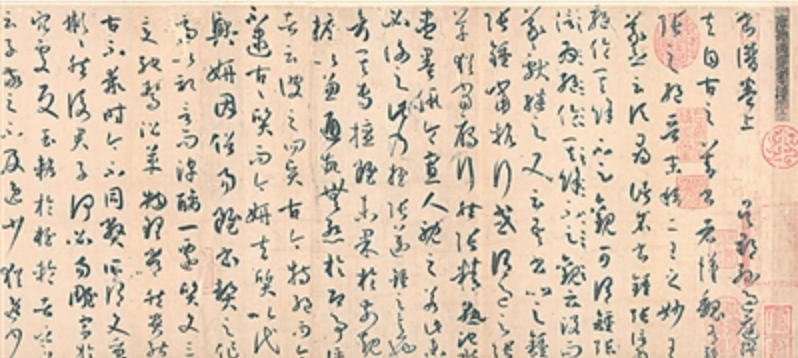 書譜卷上 吳郡孫過庭
夫自古之善書者漢魏有
張之絕晉末稱二王之妙王
羲之云頃尋諸名書鍾張信
絕倫其餘不足觀可謂鍾張
為絕倫其餘不足觀云沒而
羲獻繼之又云吾書比之鍾
張鍾當抗行或謂過之張
草猶當雁行然張精熟池水
盡墨假令寡人耽之若此未
必謝之此乃推張邁鍾之意
考其專擅雖未果於前規
摭以兼通故無慚於即事評
者云彼之四賢古今特絕而今
不逮古古質而今妍夫質以代
興妍因俗易雖書契之作
適以記言而淳醨一遷質文三
變馳鶩沿革物理常然貴能
古不乖時今不同弊所謂文質
彬彬然後君子何必易雕宮於
穴處反玉輅於椎輪者乎
云子敬之不及逸少猶逸少